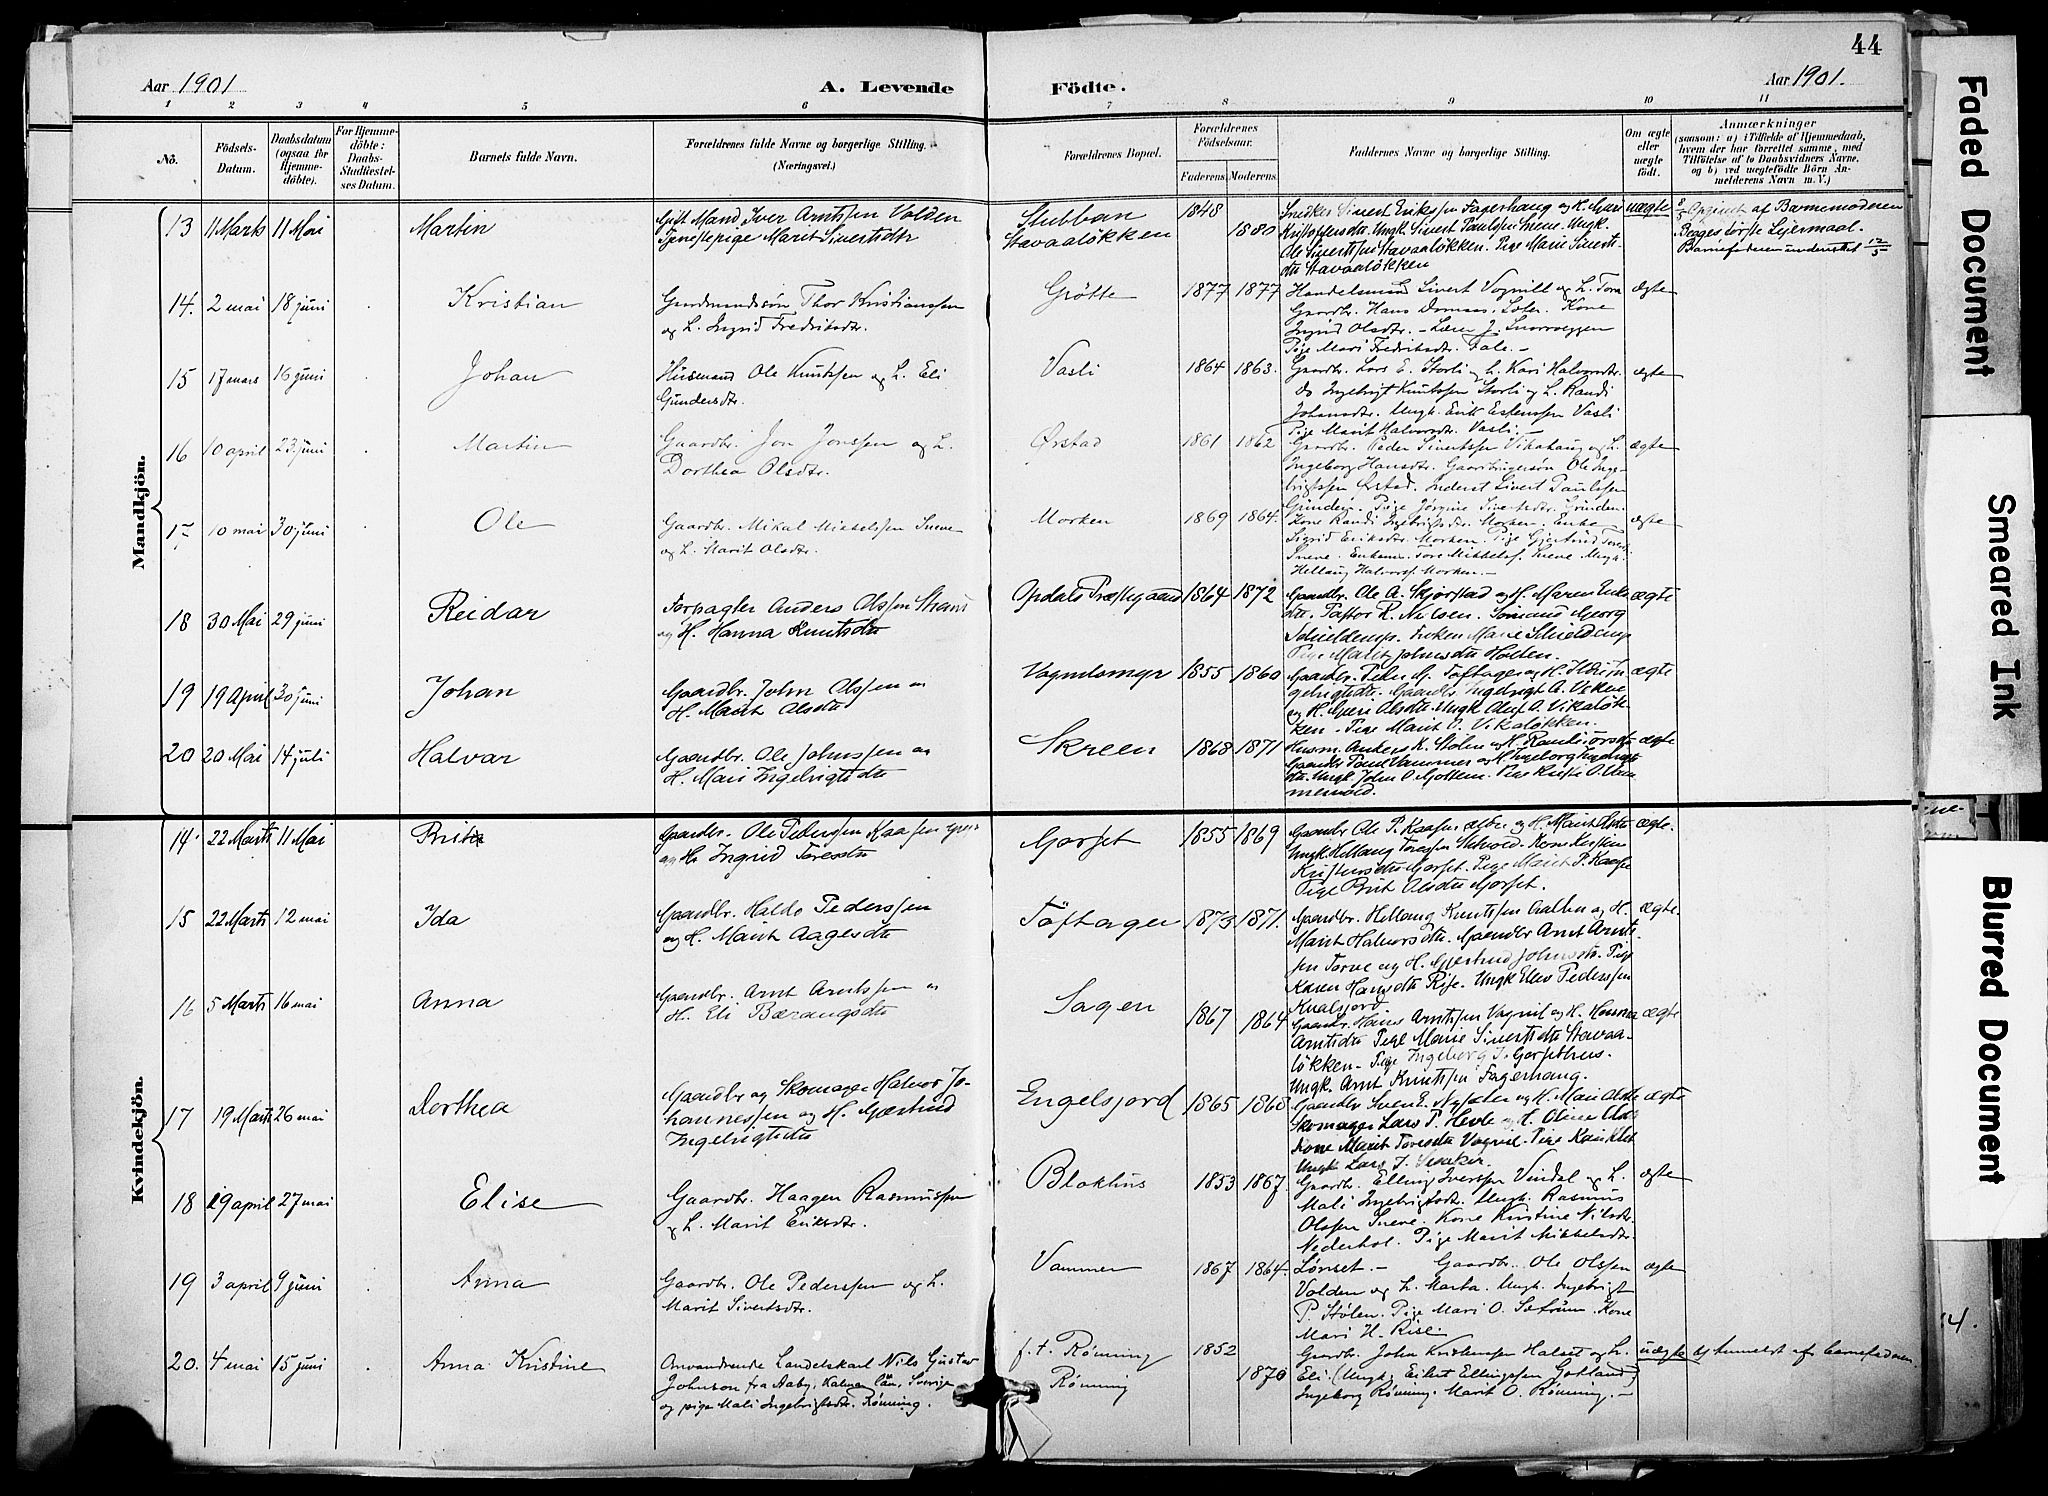 44
Aar 1901
A. Levende
Födte.
Aar 1901.
1 2 3 4 5 6 7 8 9 10 11
No.
Födsels-
Datum.
Daabsdatum
(ogsaa for
Hjemme-
döbte).
For Hjemme-
döbte:
Daabs-
Stadfæstel-
ses Datum.
Barnets fulde Navn.
Forældrenes fulde Navne og borgerlige Stilling.
(Næringsvei.)
Forældrenes Bopæl.
Forældrenes
Födselsaar.
Faderens. Moderens.
Faddernes Navne og borgerlige Stilling.
Om ægte
eller
uægte
födt.
Anmærkninger
(saasom: a) i Tilfælde af Hjemmedaab,
hvem der har forrettet samme, med
Tilföielse af to Daabsvidners Navne,
og b) ved uægtefödte Börn An-
melderens Navn m. V.)
Mandkjön.
13 11 Marts 11 Mai Martin
Gift Mand Iver Arntssen Volden
Tjenestepige Marit Sivertsdtr
Stubban
Stavaaløkken
1848
1880
Snedker Sivert Erikssen Fagerhaug og H. Mari
Kristoffersdtr. Ungk. Sivert Paulssen Sneve. Ungk.
Ole Sivertssen Stavaaløkken. Pige Marie Siverts
dtr Stavaaløkken
uægte
Opgivet af Barnemoderen
Begges første Leiermaal.
Barnefaderen underrettet 12/5
14. 2 mai 18 juni Kristian
Gaardmandssøn Thor Kristianssen
og h. Ingrid Fredriksdtr.
Grøtte
1877 1877
Handelsmand Sivert Vognill og h. Tora
Gaardbr. Hans Domaas. Kone
Ingrid Olsdtr. - Lærer J. Snorroeggen
Pige Mari Fredriksdtr. Fale. -
ægte
15 17 mars 16 juni Johan
Husmand Ole Knutssen og h. Eli
Gundersdtr.
Vasli
1864 1863.
Gaardbr. Lars E. Storli og h. Kari Halvorsdtr.
do Ingebrigt Knutssen Storli og h. Randi
Johansdtr. Ungk. Erik Estenssen Vasli
Pige Marit Halvorsdtr. Vasli. -
ægte
16 10 april 23 juni Martin
Gaardbr. Jon Jonssen og h.
Dorthea Olsdtr.
Ørstad
1861 1862
Gaardbr. Peder Sivertssen Vikahaug og h.
Ingeborg Hansdtr. Gaardbrugersøn Ole Inge-
brigtssen Ørstad. Inderst Sivert Paulssen
Grinden. Pige Jørgine Sivertsdtr. Grinden.
ægte
17 10 mai 30 juni Ole
Gaardbr. Mikal Mikkelssen Sneve
og h. Marit Olsdtr.
Morken
1869 1864.
Kone Randi Ingebrigtsdtr. Morken. Enke
Sigrid Eriksdtr. Morken. Pige Gjertrud Toresdtr.
Sneve. Enkem. Tore Mikkelss. Sneve Ungk.
Hellaug Halvorss. Morken. -
ægte
18 30 Mai 29 juni Reidar
Forpagter Anders Olssen Strand
og H. Hanna Knutsdtr
Opdals Præstegaard
1864 1872
Gaardbr. Ole A. Skjørstad og H. Maren
dtr. Pastor R. Nilsen. Sømand Georg
Schielderup. Frøken Marie Schielderup
Pige Marit Johnsdtr Holten.
ægte
19 19 April 30 juni Johan
Gaardbr. John Olssen og
H. Marit Olsdtr
Vognildsmyr
1855 1860
Gaardbr. Peder G. Tøftager og H. Ildri In
gebrigtsdtr. Gaardbr. Ingebrigt A. Viken
og H. Guri Olsdtr. Ungk Oluf O. Vikaløk-
ken - Pige Marit O. Vikaløkken.
ægte
20 20 Mai 14 juli Halvar
Gaardbr. Ole Johnssen og
H. Mari Ingebrigtsdtr
Skreen
1868 1871
Husm. Anders K. Stølen og H. Randi
Gaardbr Paul Vammer og H. Ingeborg Ingebrigts
dtr. Ungk John O. Gottem. Pige
ægte
Kvindekjön.
14. 22 Marts 11 Mai Brit
Gaardbr. Ole Pederssen Kaasen
og H. Ingrid Toresdtr
Gorset
1855 1869
Gaardbr Ole P. Kaasen og H. Marit Olsdtr
Ungk. Hellaug Toressen Kone Kirsten
Kristensdtr Gorset. Pige Marit P. Kaasen
Pige Brit Olsdtr Gorset.
ægte.
15 22 Marts 12 mai Ida
Gaardbr. Haldo Pederssen
og H. Marit Aagesdtr
Tøftager
1873 1871.
Gaardbr. Hellaug Knutssen Aalbu og H.
Marit Halvorsdtr. Gaardbr Arnt Arnts-
sen Torve og H. Gjertrud Johnsdtr. Pige
Karen Hansdtr Rise. Ungk Elev Pederssen
ægte.
16 5 Marts 16 mai Anna
Gaardbr. Arnt Arntssen og
H. Eli Bærangsdtr
Sagen
1867 1864
Gaardbr. Hans Arntssen Vognil og H. Hanna
Arntsdtr Pige Marie Sivertsdtr Stavaa-
løkken - Pige Ingeborg J. Gorsethus.
Ungk. Arnt Knutssen Fagerhaug.
ægte
17 19 Marts 26 mai Dorthea
Gaardbr og Skomager Halvor Jo-
hannessen og H. Gjertrud
Ingebrigtsdtr
Engelsjord
1865 1868
Gaardbr Sven E. Nysæter og H. Mari Olsdtr
Skomager Lars P. Hevle og H. Oline
Kone Marit Toresdtr Vognil. Pige Kari
Ungk Lars J.
ægte
18 29 april 27 mai Elise
Gaardbr. Haagen Rasmussen
og h. Marit Eriksdtr.
Blokhus
1853 1867.
Gaardbr. Elling Iverssen Vindal og h.
Mali Ingebrigtsdtr. Ungk. Rasmus
Olssen Sneve. Kone Kristine Nilsdtr.
Nederhol. Pige Marit Mikkelsdtr.
ægte
19 3 april 9 juni Anna
Gaardbr. Ole Pederssen og h.
Marit Sivertsdtr.
Vammer
1867 1864.
Lønset. - Gaardbr. Ole Olssen
Volden og h. Marta. Ungk. Ingebrigt
P. Stølen. Pige Mari O. Sætrum. Kone
Mari H. Rise.
ægte
20. 4 mai 15 juni Anna Kristine
Omvandrende Landeskarl Nils Gustav
Johnson fra Aaby, Kalmar län, Sverige
og pige Mali Ingebrigtsdtr. Rønning.
f. t. Rønning
Rønning
1852
1870
Gaardbr. John Kristenssen Halset og h.
Eli (Ungk. Eilert Ellingssen Gotland)
Ingeborg Rønning. Marit O. Rønning. -
uægte
anmeldt af barnefaderen.
Faded Document
Smeared Ink
Blurred Document